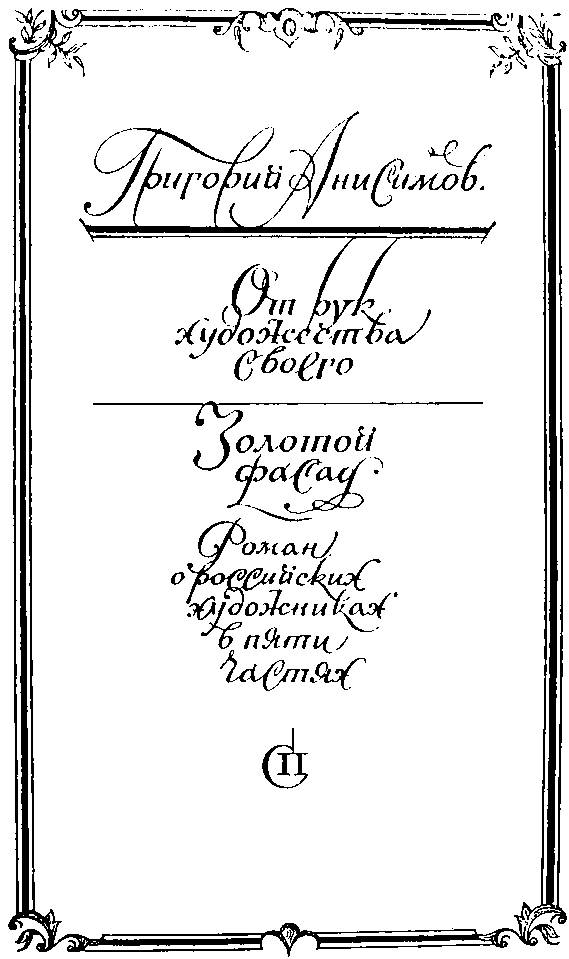 Григорий Анисимов.
От рук
художества
своего
Золотой
фасад
Роман
о российских
художниках
в пяти
частях
СП